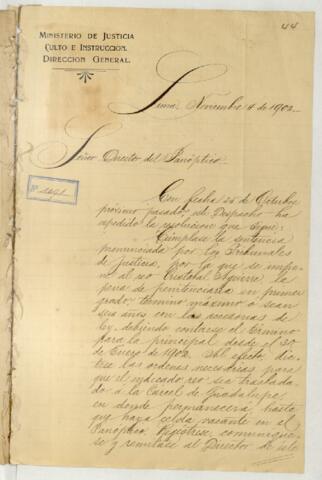 44
MINISTERIO DE JUSTICIA
CULTO E INSTRUCCION.
DIRECCION GENERAL.
Lima, Noviembre 4 de 1902
Señor Director del Panóptico.
Nº
Con fecha 25 de Octubre
próximo pasado, este Despacho ha
expedido la resolución que sigue:
Cúmplase la sentencia
pronunciada por los Tribunales
de Justicia, por la que se impo-
ne al reo Cristobal la
pena de penitenciaria en primer
grado, término máximo o sean
seis años con las accesorias de
ley, debiendo contarse el término
para la principal desde el 30
de Enero de 1902. Al efecto, dic-
tese las ordenes necesarias para
que el indicado reo sea traslada-
do á la Carcel de Guadalupe,
en donde permanecerá hasta
que haya celda vacante en el
Panóptico. Regístrese, comuníque-
se y remítase al Director de este